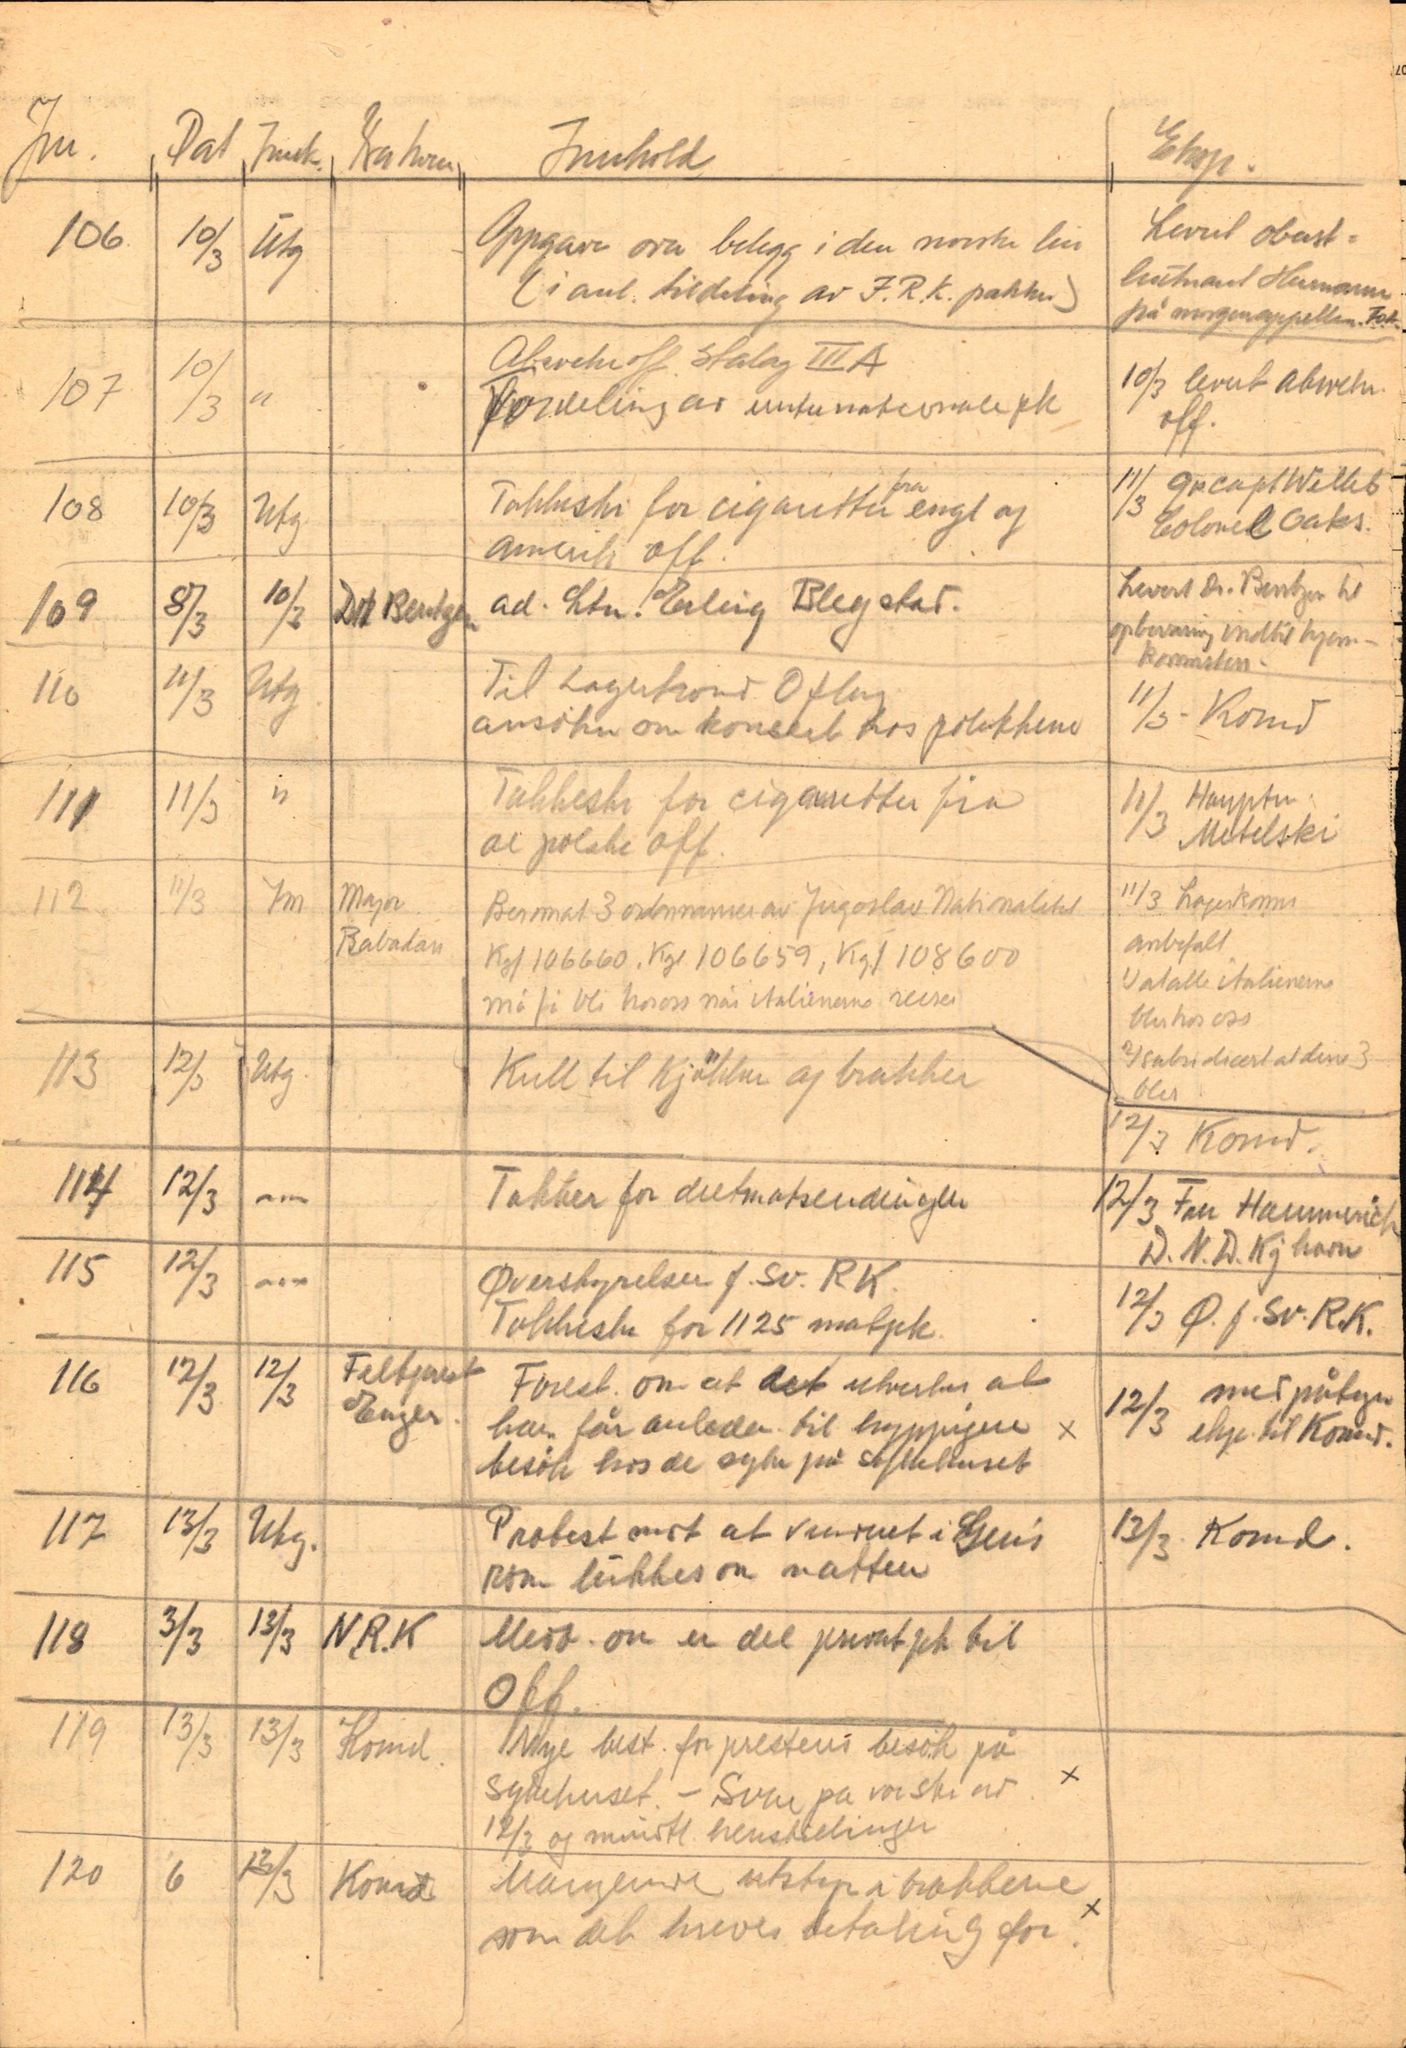 Jnr. Dat Innk. Innhold Eksp.
106 10/3 Utg Oppgave over belegg i den norske leir Levert oberst-
(i anl. tildeling av I.R.K. pakker) leutnant Hermann
på morgenappellen.
107 10/3 " Abwehroff. Stalag III A 10/3 levert Abwehr
Fordeling av internationale pk off.
108 10/3 Utg Takkeskr for cigaretter fra engl og 11/3 Grcapt Willet
amerik off. Colonel Oaks.
109 8/3 10/3 Dr Bentzen ad. Ltn. Erling Blegstad. Levert Dr. Bentzen til
opbevaring indtil hjem-
komsten.
110 11/3 Utg Til Lagerkomd Oflag 11/3 - Komd
ansökn om konsert hos polakkene
111 11/3 " Takkeskr for cigaretter fra 11/3 Hauptm.
de polske off. Metelski
112 11/3 Inn Major 3 ordonnanser av Jugoslav Nationalitet 11/3 Lagerkomm
Rabadan Kgf 106660, Kgf 106659, Kgf 108600 anbefalt
må få bli hos oss når italienerne reiser 1) at alle italienerne
blir hos oss
2) subsidiært at disse 3
blir
113 12/3 Utg. Kull til kjökken og brakker
12/3 Komd.
114 12/3 -"- Takker for dietmatsendingen 12/3 Fru Hammerich
D.N.D. Kjhavn
115 12/3 -"- Øverstyrelsen f. Sv. R.K. 12/3 Ø. f. Sv. R.K.
Takkeskr for 1125 matpk.
116 12/3 12/3 Feltprest Forest. om at det utvirkes at 12/3 med påtegn
Enger. han får anledn. til hyppigere x eksp. til Komd.
besök hos de syke på sykehuset
117 13/3 Utg. Protest mot at vinduet i Geis 13/3 Komd.
rom lukkes om natten
118 3/3 13/3 N.R.K Medd. om en del privat pk til
Off.
119 13/3 13/3 Komd. Nye best. for prestens besök på
sykehuset. - Svar på vor skr av x
12/3 og mundtl. henstillinger
120 6 13/3 Komd Manglende utstyr i brakkene
som det kreves betaling for. x